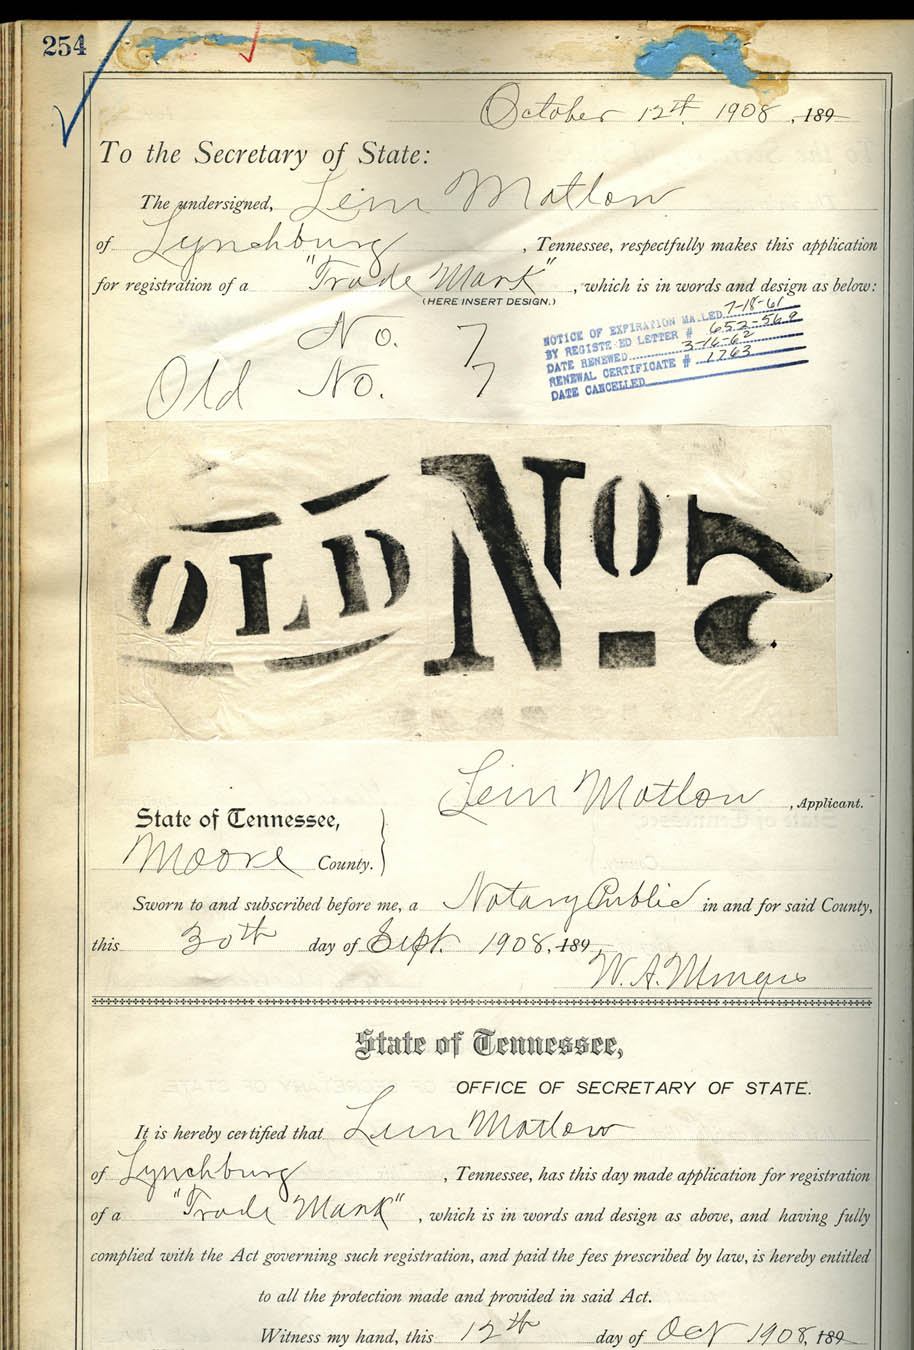 254
October 12th. 1908, 189
To the Secretary of State:
The undersigned, Lem Motlow
of Lynchburg, Tennessee, respectfully makes this application
for registration of a "Trade Mark", which is in words and design as below:
(HERE INSERT DESIGN.)
No. 7
Old No. 7
NOTICE OF EXPIRATION MAILED 7-18-61
BY REGISTERED LETTER # 652-569
DATE RENEWED 3-16-62
RENEWAL CERTIFICATE # 1763
DATE CANCELLED
OLD No. 7
Lem Motlow, Applicant.
State of Tennessee,
Moore County.
Sworn to and subscribed before me, a Notary Public in and for said County,
this 30th day of Sept. 1908, 189
W. A.
State of Tennessee,
OFFICE OF SECRETARY OF STATE.
It is hereby certified that Lem Motlow
of Lynchburg, Tennessee, has this day made application for registration
of a "Trade Mark", which is in words and design as above, and having fully
complied with the Act governing such registration, and paid the fees prescribed by law, is hereby entitled
to all the protection made and provided in said Act.
Witness my hand, this 12th day of Oct 1908, 189